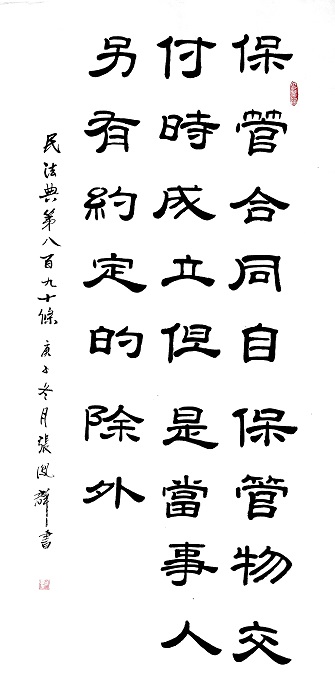 保管合同自保管物交
付時成立但是當事人
另有約定的除外
民法典第八百九十條 庚子冬月張風群書